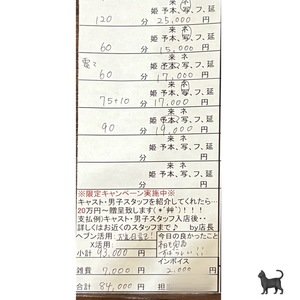 来 ネ
姫 予本、写、フ、延
120 分 25,000 円
来 ネ
姫 予本、写、フ、延
60 分 15,000 円
来 ネ
姫 予本、写、フ、延
60 分 17,000 円
来 ネ
姫 予本、写、フ、延
75+10 分 17,000 円
来 ネ
姫 予本、写、フ、延
90 分 19,000 円
来 ネ
姫 予本、写、フ、延
分 円
来 ネ
姫 予本、写、フ、延
分 円
※限定キャンペーン実施中※
キャスト・男子スタッフを紹介してくれたら…
20万円~贈呈致します(*´艸`)!!!
支払例)キャスト・男子スタッフ入店後・・
詳しくはお近くのスタッフまで♪ by店長
ヘブン活用 今日の良かったこと
X活用
小計 93,000 円 インボイス
雑費 7,000 円 2,000 円
合計 84,000 円 担